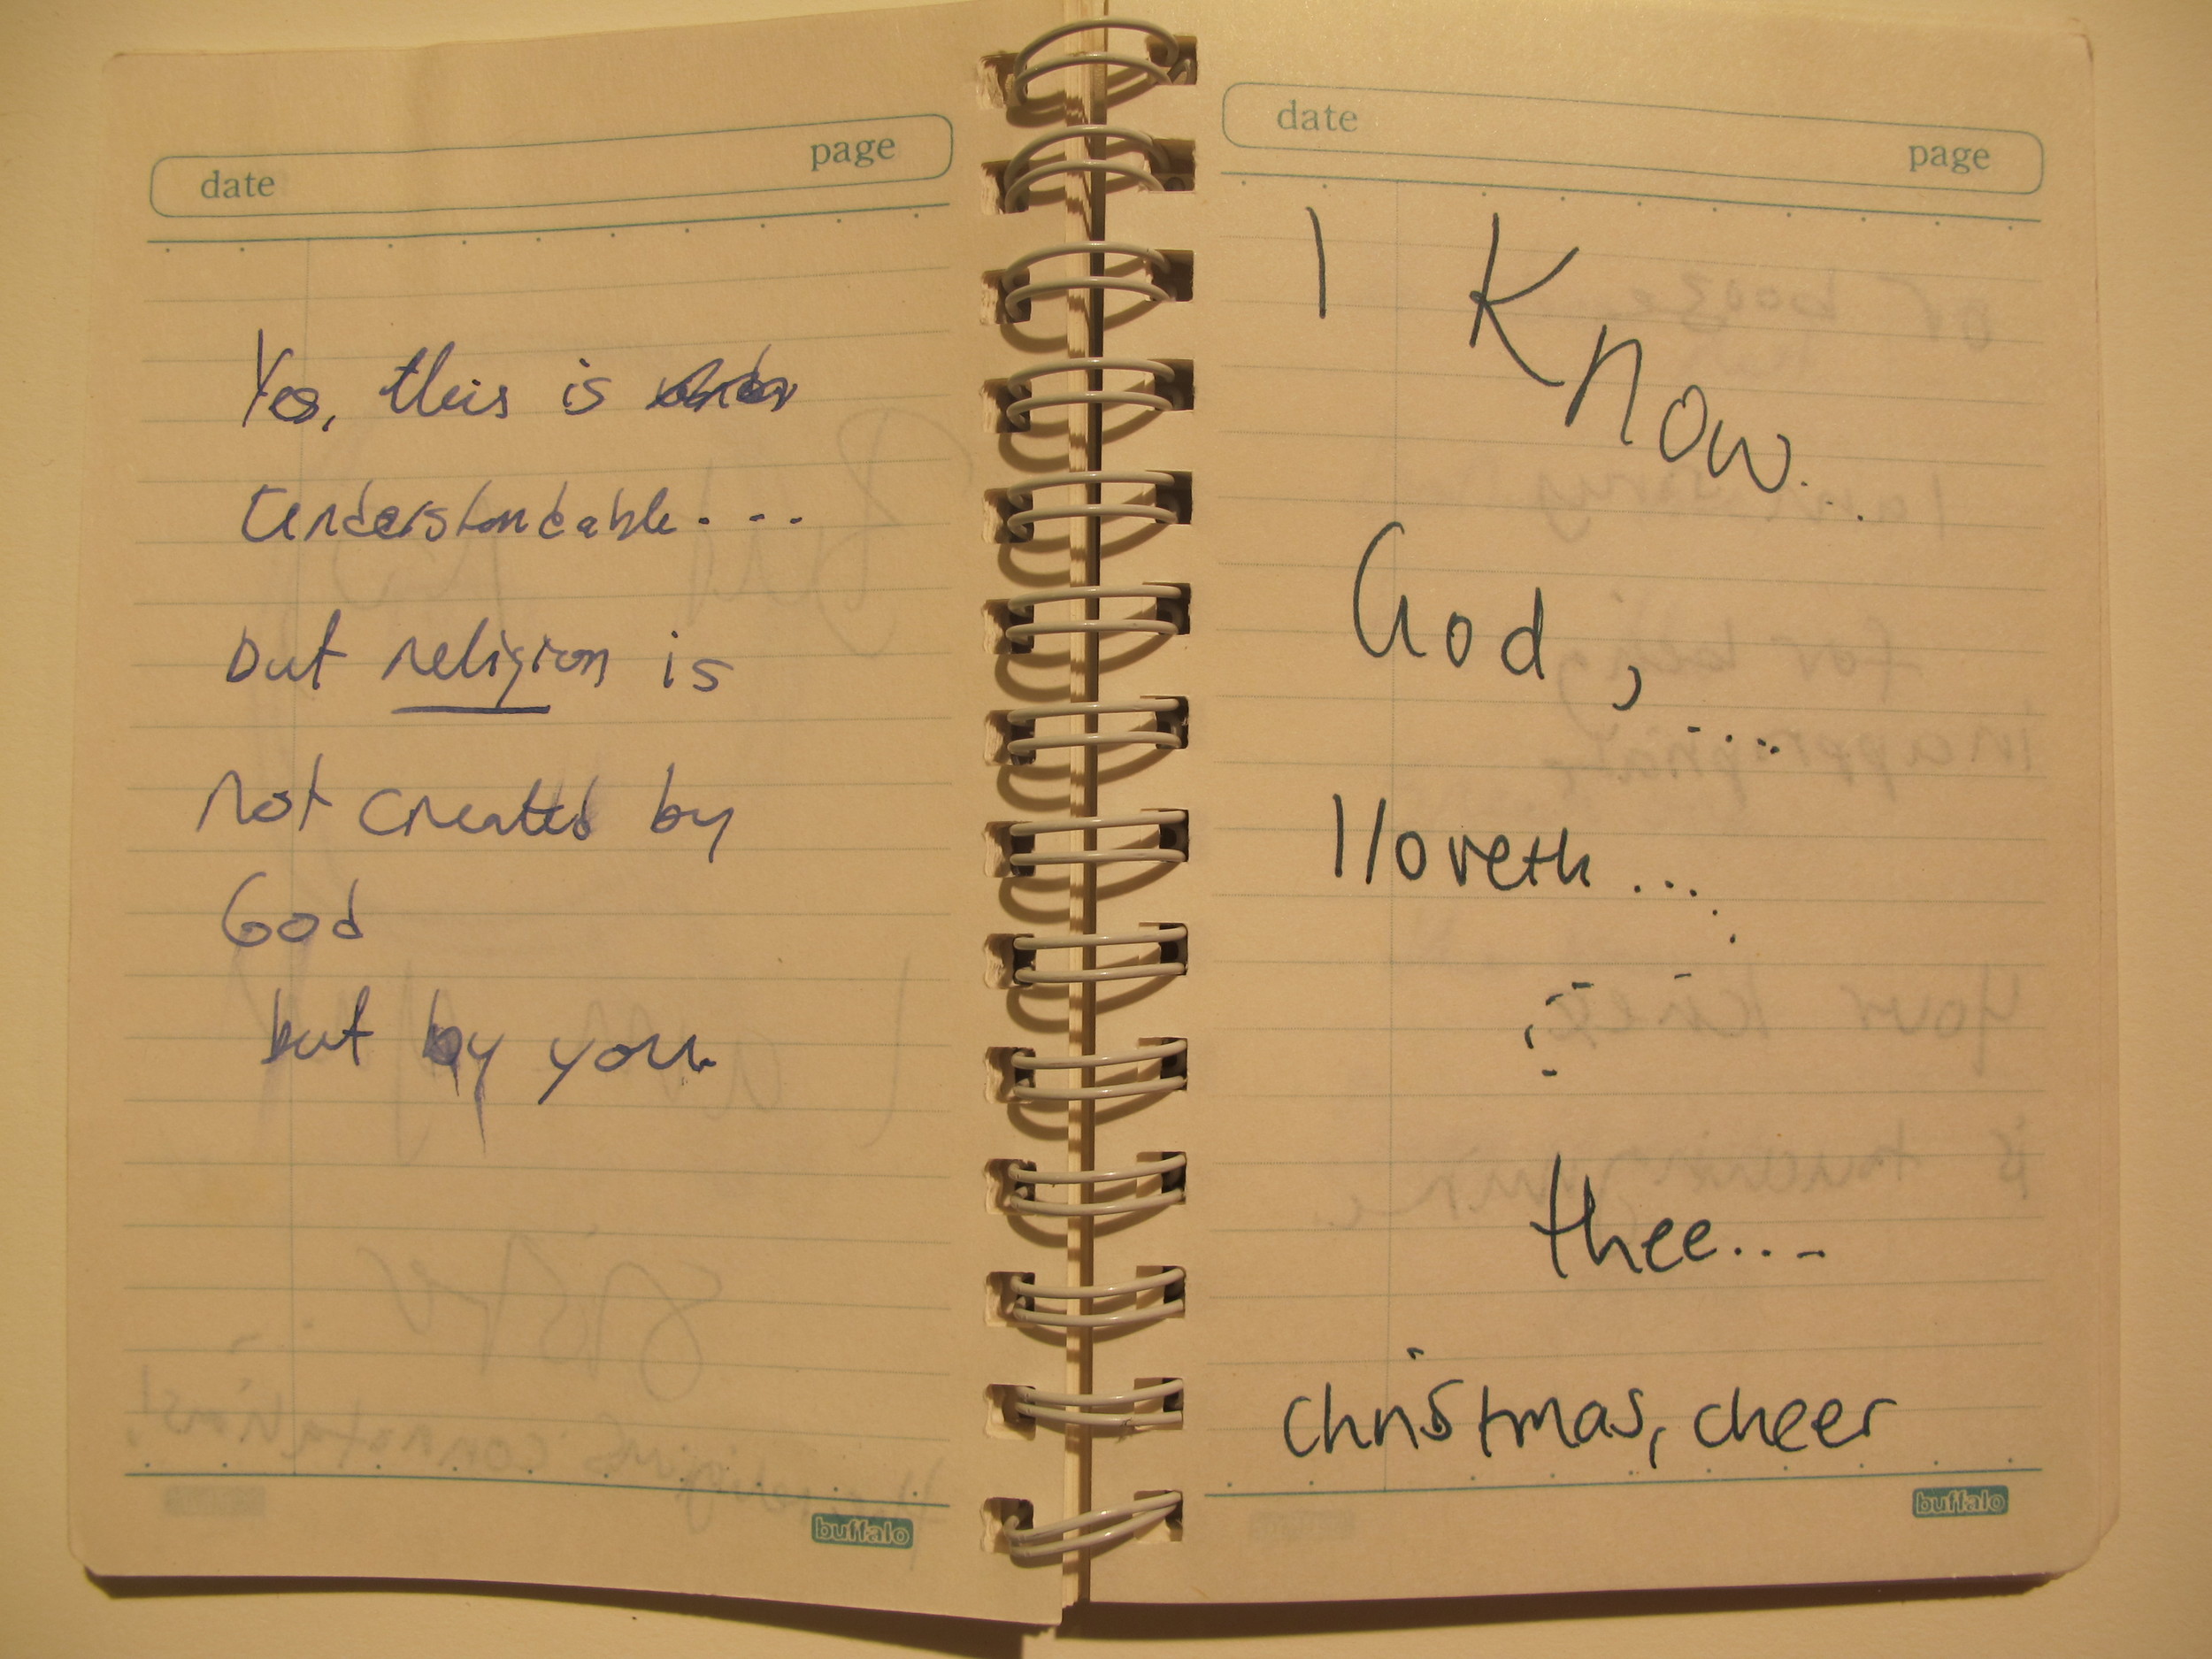 date page
Yes, this is
understandable....
but religion is
not created by
God
but by you.
buffalo
date page
I Know...
God, ....
I loveth ...
thee....
christmas, cheer
buffalo